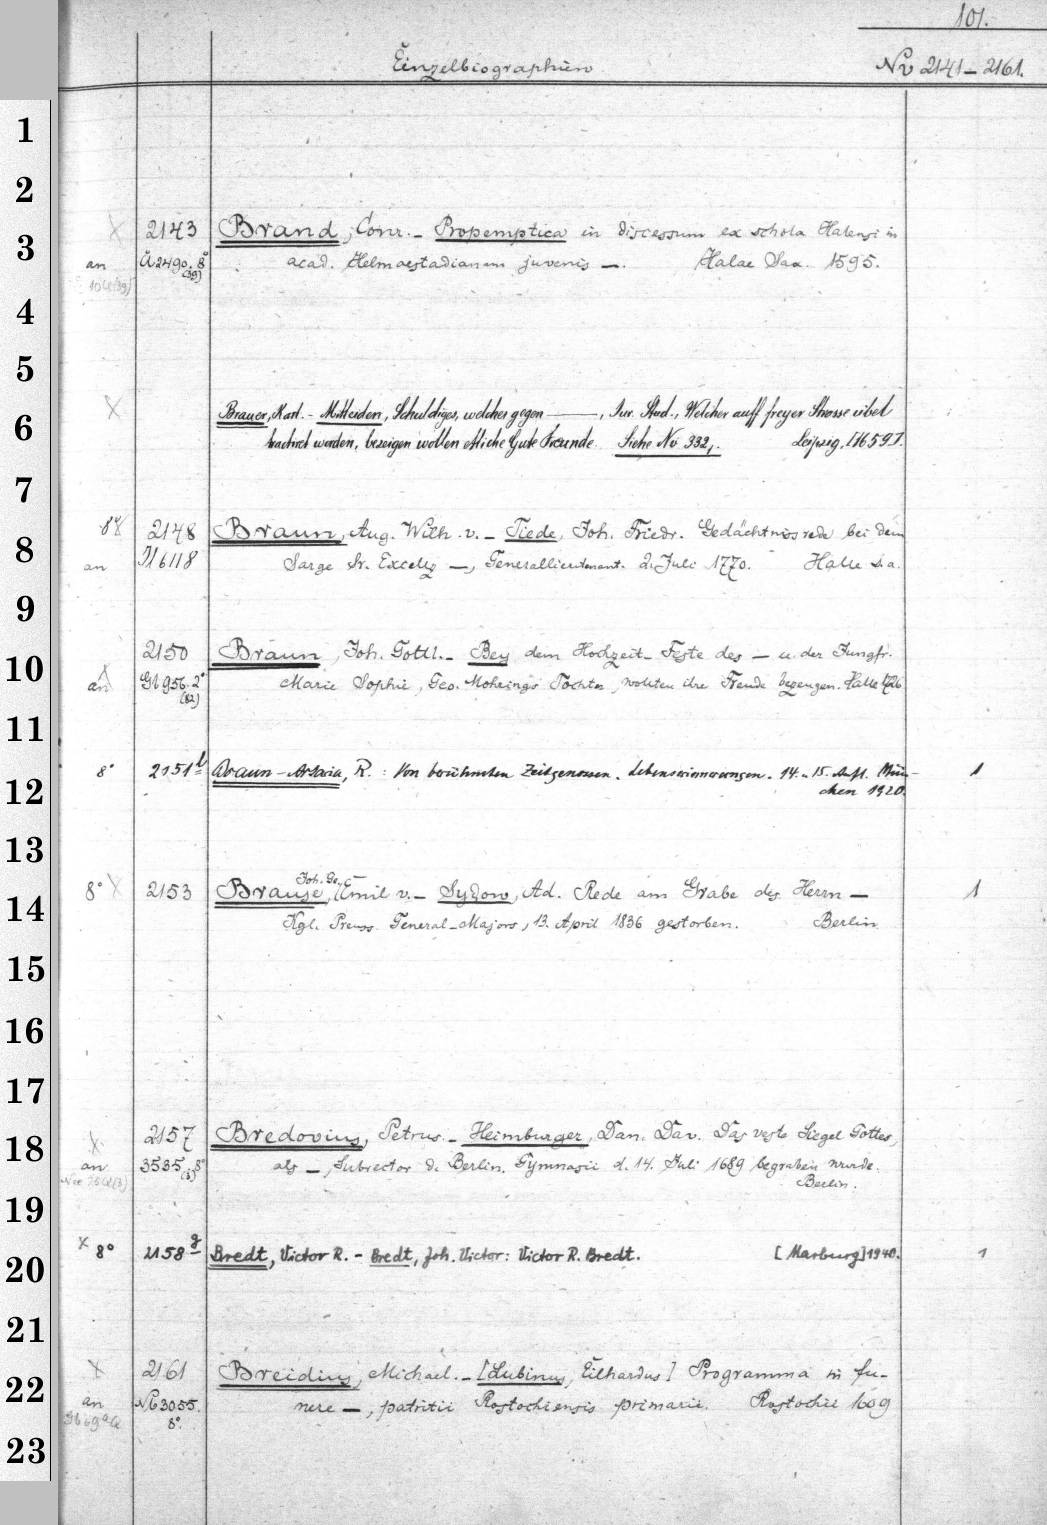 101.
Einzelbiographien Nv 2141 – 2161.
1
2
2143 Brand, Conr. – Propemptica in discessum ex schola Halensi in
3
an A 2490. 8° acad. Helmaestadianam juvenis —. Halae Sax. 1595.
(39)
4
5
Brauer, Karl. – Mitleiden, Schuldiges, welches gegen ——, Jur. Stud., Welcher auff freyer Strasse übel
6
tractiret worden, bezeigen wolten etliche Gute Freunde. Siehe Nv 332, Leipzig, [1659].
7
8° 2148 Braun, Aug. Wilh. v. – Tiede, Joh. Friedr. Gedächtnissrede bei dem
8
an 6118 Sarge Sr. Excellz —, Generallieutenant. 2. Juli 1770. Halle s. a.
9
2150 Braun, Joh. Gottl. – Bey dem Hochzeit-Feste des — u. der Jungfr.
10
an Gb 956. 2° Marie Sophie, Geo. Mohrings Tochter, wollten ihre Freude bezeugen. Halle 1726
(82)
11
8° 2151 b Braun-Artaria, R.: Von berühmten Zeitgenossen. Lebenserinnerungen. 14. u. 15. Aufl. Mün- 1
12
chen 1920.
13
Joh. Ge.
8° X 2153 Brause, Emil v. – Sydow, Ad. Rede am Grabe des Herrn — 1
14
Kgl. Preuss. General-Majors, 13. April 1836 gestorben. Berlin
15
16
17
2157 Bredovius, Petrus. – Heimburger, Dan. Dav. Das veste Siegel Gottes,
18
an 3535. 8° als —, Subrector d. Berlin. Gymnasii d. 14. Juli 1689 begraben wurde.
Berlin.
19
X 8° 2158 g Bredt, Victor R. – Bredt, Joh. Victor: Victor R. Bredt. [Marburg] 1940. 1
20
21
X 2161 Breidius, Michael. – [Lubinus, Eilhardus] Programma in fu-
22
an 3055. nere —, patritii Rostochiensis primarii. Rostochii 1609
8°.
23